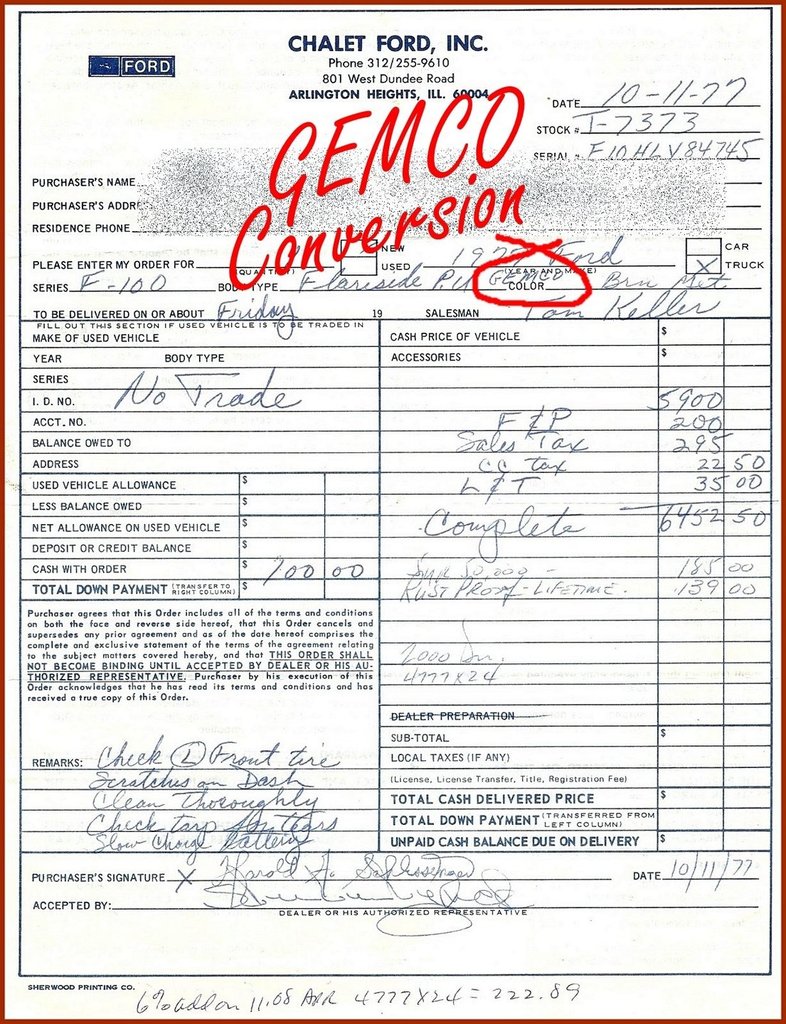 FORD
CHALET FORD, INC.
Phone 312/255-9610
801 West Dundee Road
ARLINGTON HEIGHTS, ILL. 60004
GEMCO
Conversion
DATE 10-11-77
STOCK # T-7373
SERIAL # F10HLV84745
PURCHASER'S NAME
PURCHASER'S ADDR
RESIDENCE PHONE
NEW
CAR
PLEASE ENTER MY ORDER FOR (QUANTITY) USED 1977 Ford (YEAR AND MAKE) X TRUCK
SERIES F-100 BODY TYPE Flareside P.U. GEMCO COLOR Brn Met
TO BE DELIVERED ON OR ABOUT Friday 19 SALESMAN Tom Keller
FILL OUT THIS SECTION IF USED VEHICLE IS TO BE TRADED IN
MAKE OF USED VEHICLE
YEAR BODY TYPE
SERIES
I. D. NO. No Trade
ACCT. NO.
BALANCE OWED TO
ADDRESS
USED VEHICLE ALLOWANCE $
LESS BALANCE OWED $
NET ALLOWANCE ON USED VEHICLE $
DEPOSIT OR CREDIT BALANCE $
CASH WITH ORDER $ 700 00
TOTAL DOWN PAYMENT (TRANSFER TO RIGHT COLUMN) $
Purchaser agrees that this Order includes all of the terms and conditions
on both the face and reverse side hereof, that this Order cancels and
supersedes any prior agreement and as of the date hereof comprises the
complete and exclusive statement of the terms of the agreement relating
to the subject matters covered hereby, and that THIS ORDER SHALL
NOT BECOME BINDING UNTIL ACCEPTED BY DEALER OR HIS AU-
THORIZED REPRESENTATIVE. Purchaser by his execution of this
Order acknowledges that he has read its terms and conditions and has
received a true copy of this Order.
REMARKS: Check L Front tire
Scratches on Dash
Clean Thoroughly
Check tarp for tears
Slow Charge Battery
CASH PRICE OF VEHICLE $
ACCESSORIES $
5900
F & P 200
Sales Tax 295
CC tax 22 50
L & T 35 00
Complete 6452 50
50,000 - 185 00
RUST PROOF - LIFETIME. 139 00
4777 X 24
DEALER PREPARATION
SUB-TOTAL $
LOCAL TAXES (IF ANY)
(License, License Transfer, Title, Registration Fee)
TOTAL CASH DELIVERED PRICE $
TOTAL DOWN PAYMENT (TRANSFERRED FROM LEFT COLUMN)
UNPAID CASH BALANCE DUE ON DELIVERY $
PURCHASER'S SIGNATURE X Harold DATE 10/11/77
ACCEPTED BY:
DEALER OR HIS AUTHORIZED REPRESENTATIVE
SHERWOOD PRINTING CO.
6% add on 11.08 APR 4777X24 = 222.89